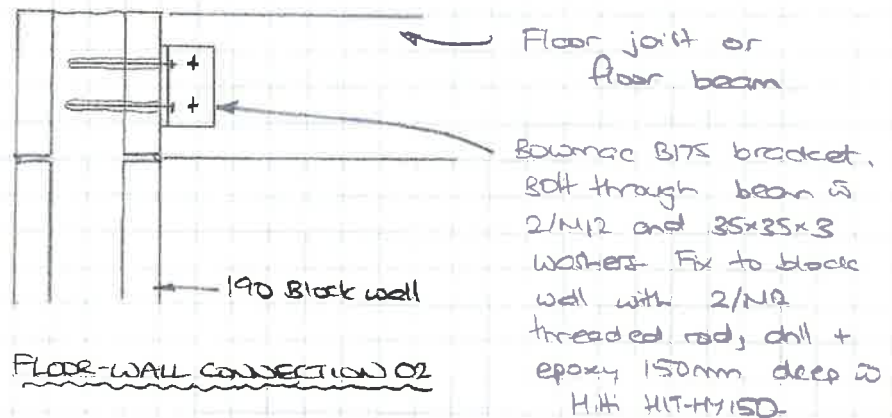 Floor joist or
floor beam
Bowmac B175 bracket.
Bolt through beam w̄
2/M12 and 35x35x3
washers. Fix to block
wall with 2/M12
threaded rod, drill +
epoxy 150mm deep w̄
Hilti HIT-HY150.
190 Block wall
FLOOR-WALL CONNECTION 02